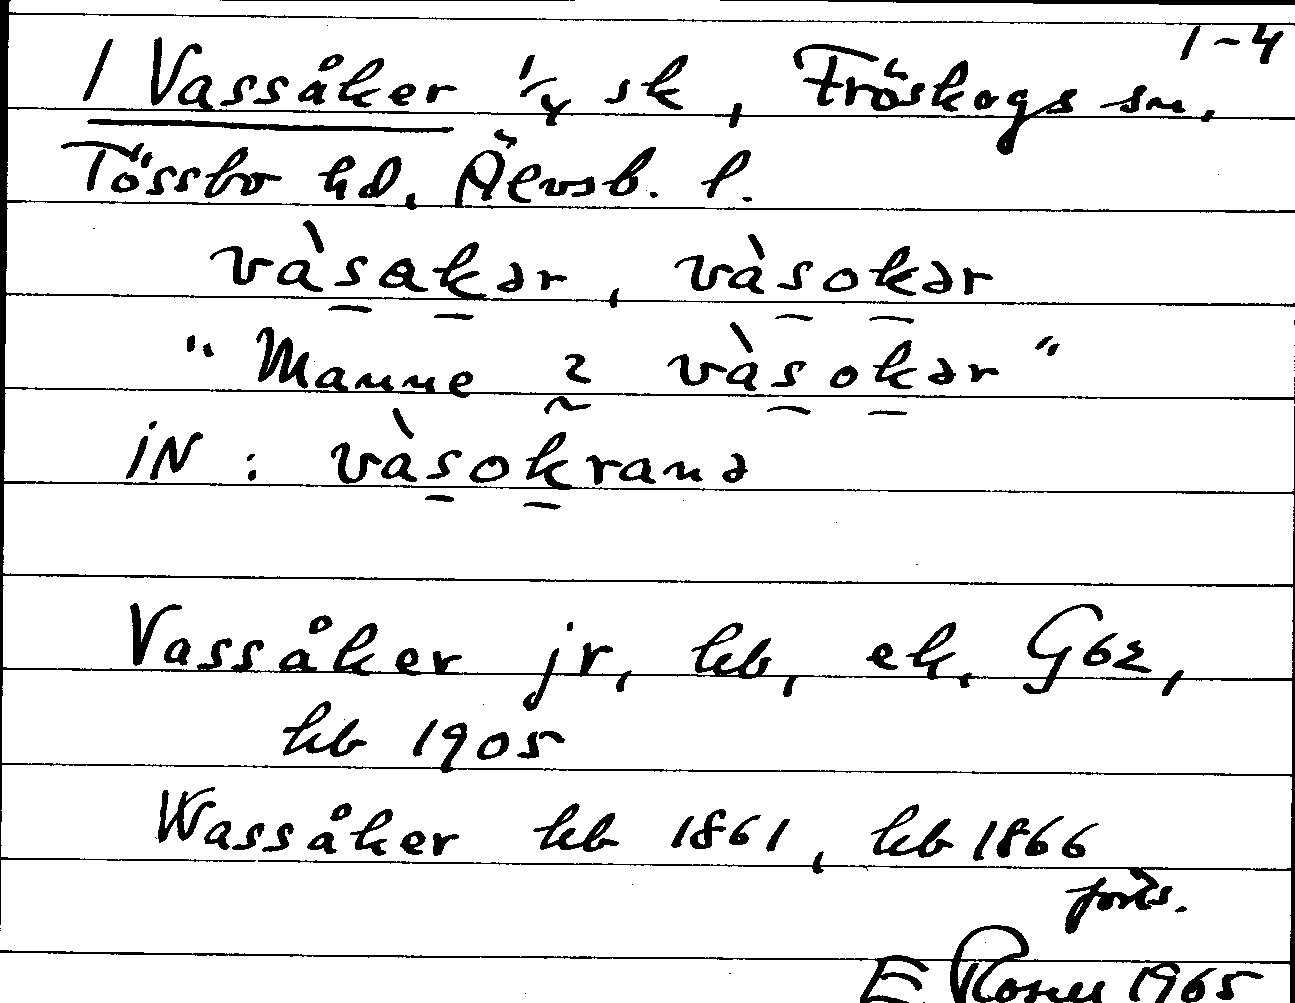 1-4
1 Vassåker 1/4 sk, Fröskogs sn.
Tössbo hd. Älvsb. l.
vàsakər, vàsokər
"Manne i vàsokər"
iN: vàsokranə
Vassåker jr, kb, ek, G62,
kb 1905
Wassåker kb 1861, kb 1866
forts.
E 1965